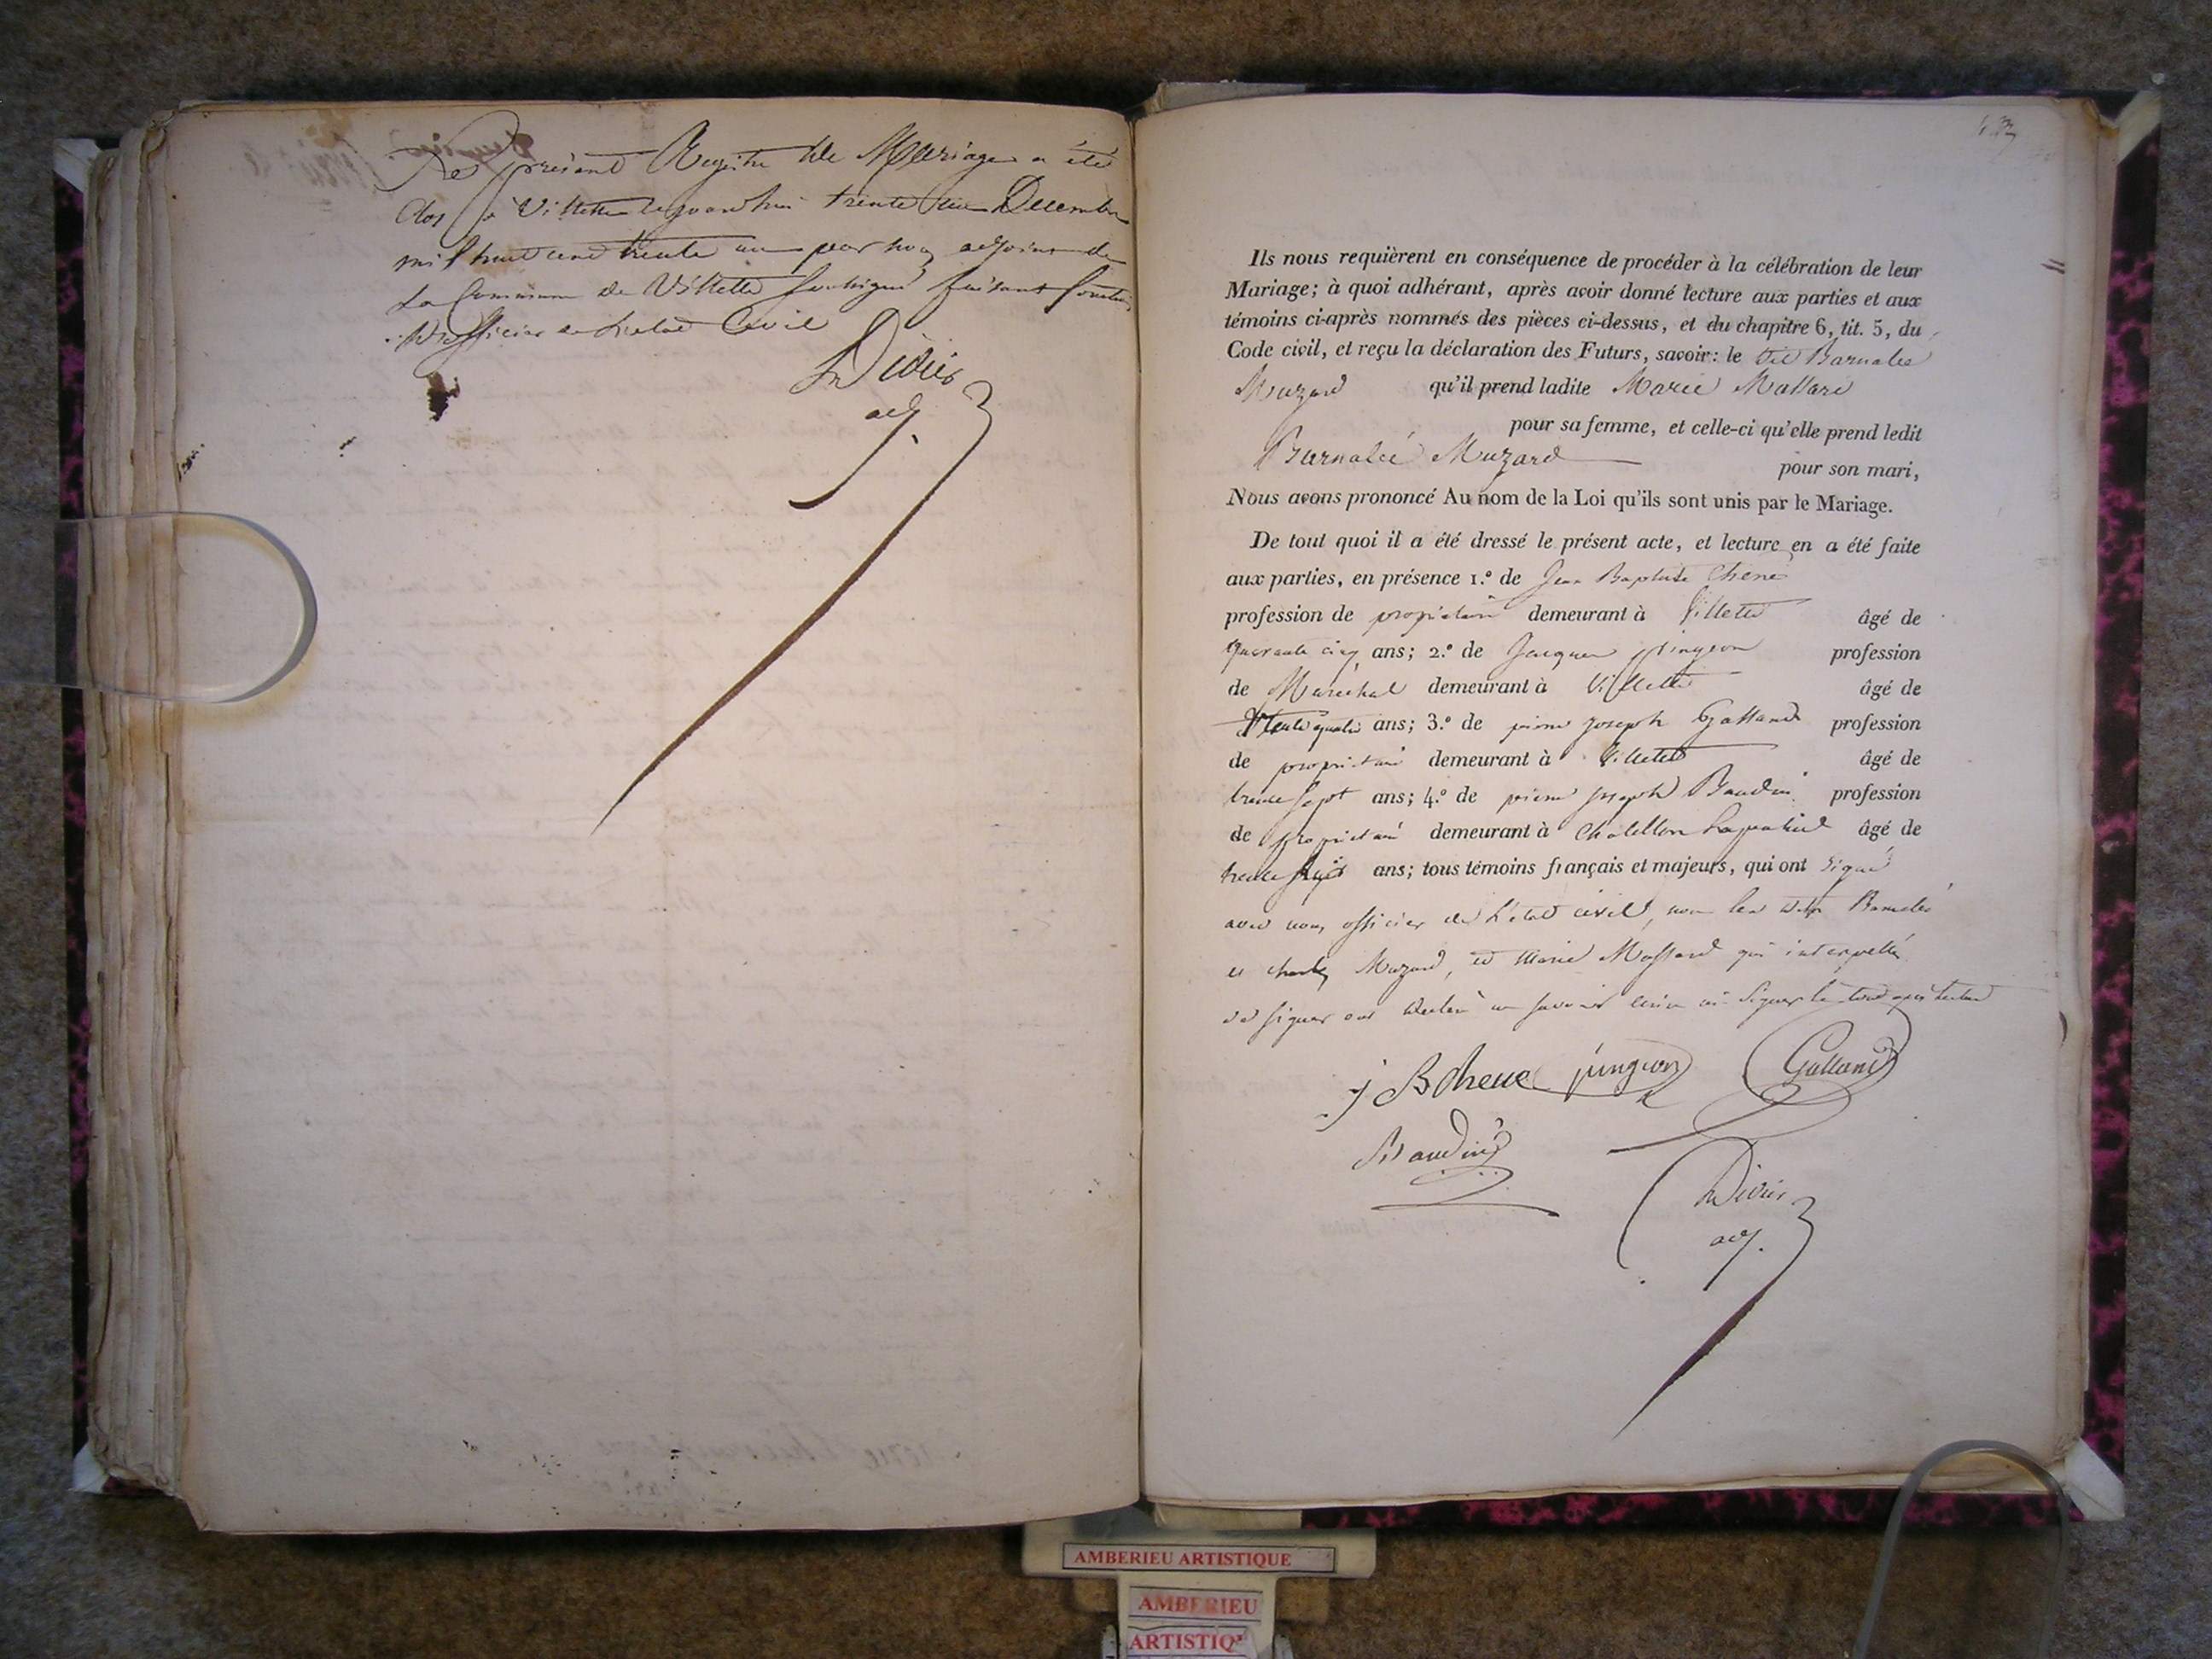 Le présent Registre de Mariages a été
clos à Villette aujourdhui trente un Décembre
mil huit cent trente un par nous adjoint de
La Commune de Villette soussigné faisant fonction
D'officier de L'etat Civil
Didier
adj.
Ils nous requièrent en conséquence de procéder à la célébration de leur
Mariage; à quoi adhérant, après avoir donné lecture aux parties et aux
témoins ci-après nommés des pièces ci-dessus, et du chapitre 6, tit. 5, du
Code civil, et reçu la déclaration des Futurs, savoir: le dit Barnabé
Muzard qu'il prend ladite Marie
pour sa femme, et celle-ci qu'elle prend ledit
Barnabé Muzard pour son mari,
Nous avons prononcé Au nom de la Loi qu'ils sont unis par le Mariage.
De tout quoi il a été dressé le présent acte, et lecture en a été faite
aux parties, en présence 1.º de Jean Baptiste Chene
profession de propriétaire demeurant à Villette âgé de
quarante cinq ans; 2.º de Jacques pingeon profession
de Maréchal demeurant à Villette âgé de
trente quatre ans; 3.º de pierre joseph Galland profession
de propriétaire demeurant à Villette âgé de
trente sept ans; 4.º de pierre joseph Baudin profession
de propriétaire demeurant à Châtillon Lapalud âgé de
trente ans; tous témoins français et majeurs, qui ont signé
avec nous officier de L'état civil, non les dits Barnabé
et Muzard, et Marie qui interpellés
de signer ont déclaré ne savoir écrire ni signer le tout après lecture
j B chene pingeon Galland
Baudin
Didier
adj.
AMBERIEU ARTISTIQUE
AMBERIEU
ARTISTIQ